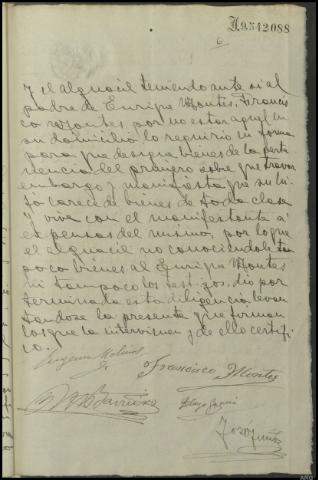 J.9542088
6
Y el alguacil teniendo ante si al
padre de Enrique Montes, Francis
co Montes, por no estar aquel en
su domicilio lo requirio en forma
para que designe bienes de la perte
nencia del primero sobre que travar
embargo y manifiesta que su hi
jo carece de bienes de toda clase
y vive con el manifestante á
expensas del mismo, por lo que
el alguacil no conociendole tam
poco bienes al Enrique Montes
ni tampoco los testigos, dio por
terminada esta diligencia levan
tandose la presente que firman
los que la intervienen y de ello certifi
co.
Eugenio Molina
Francisco Montes
Jose Muñoz